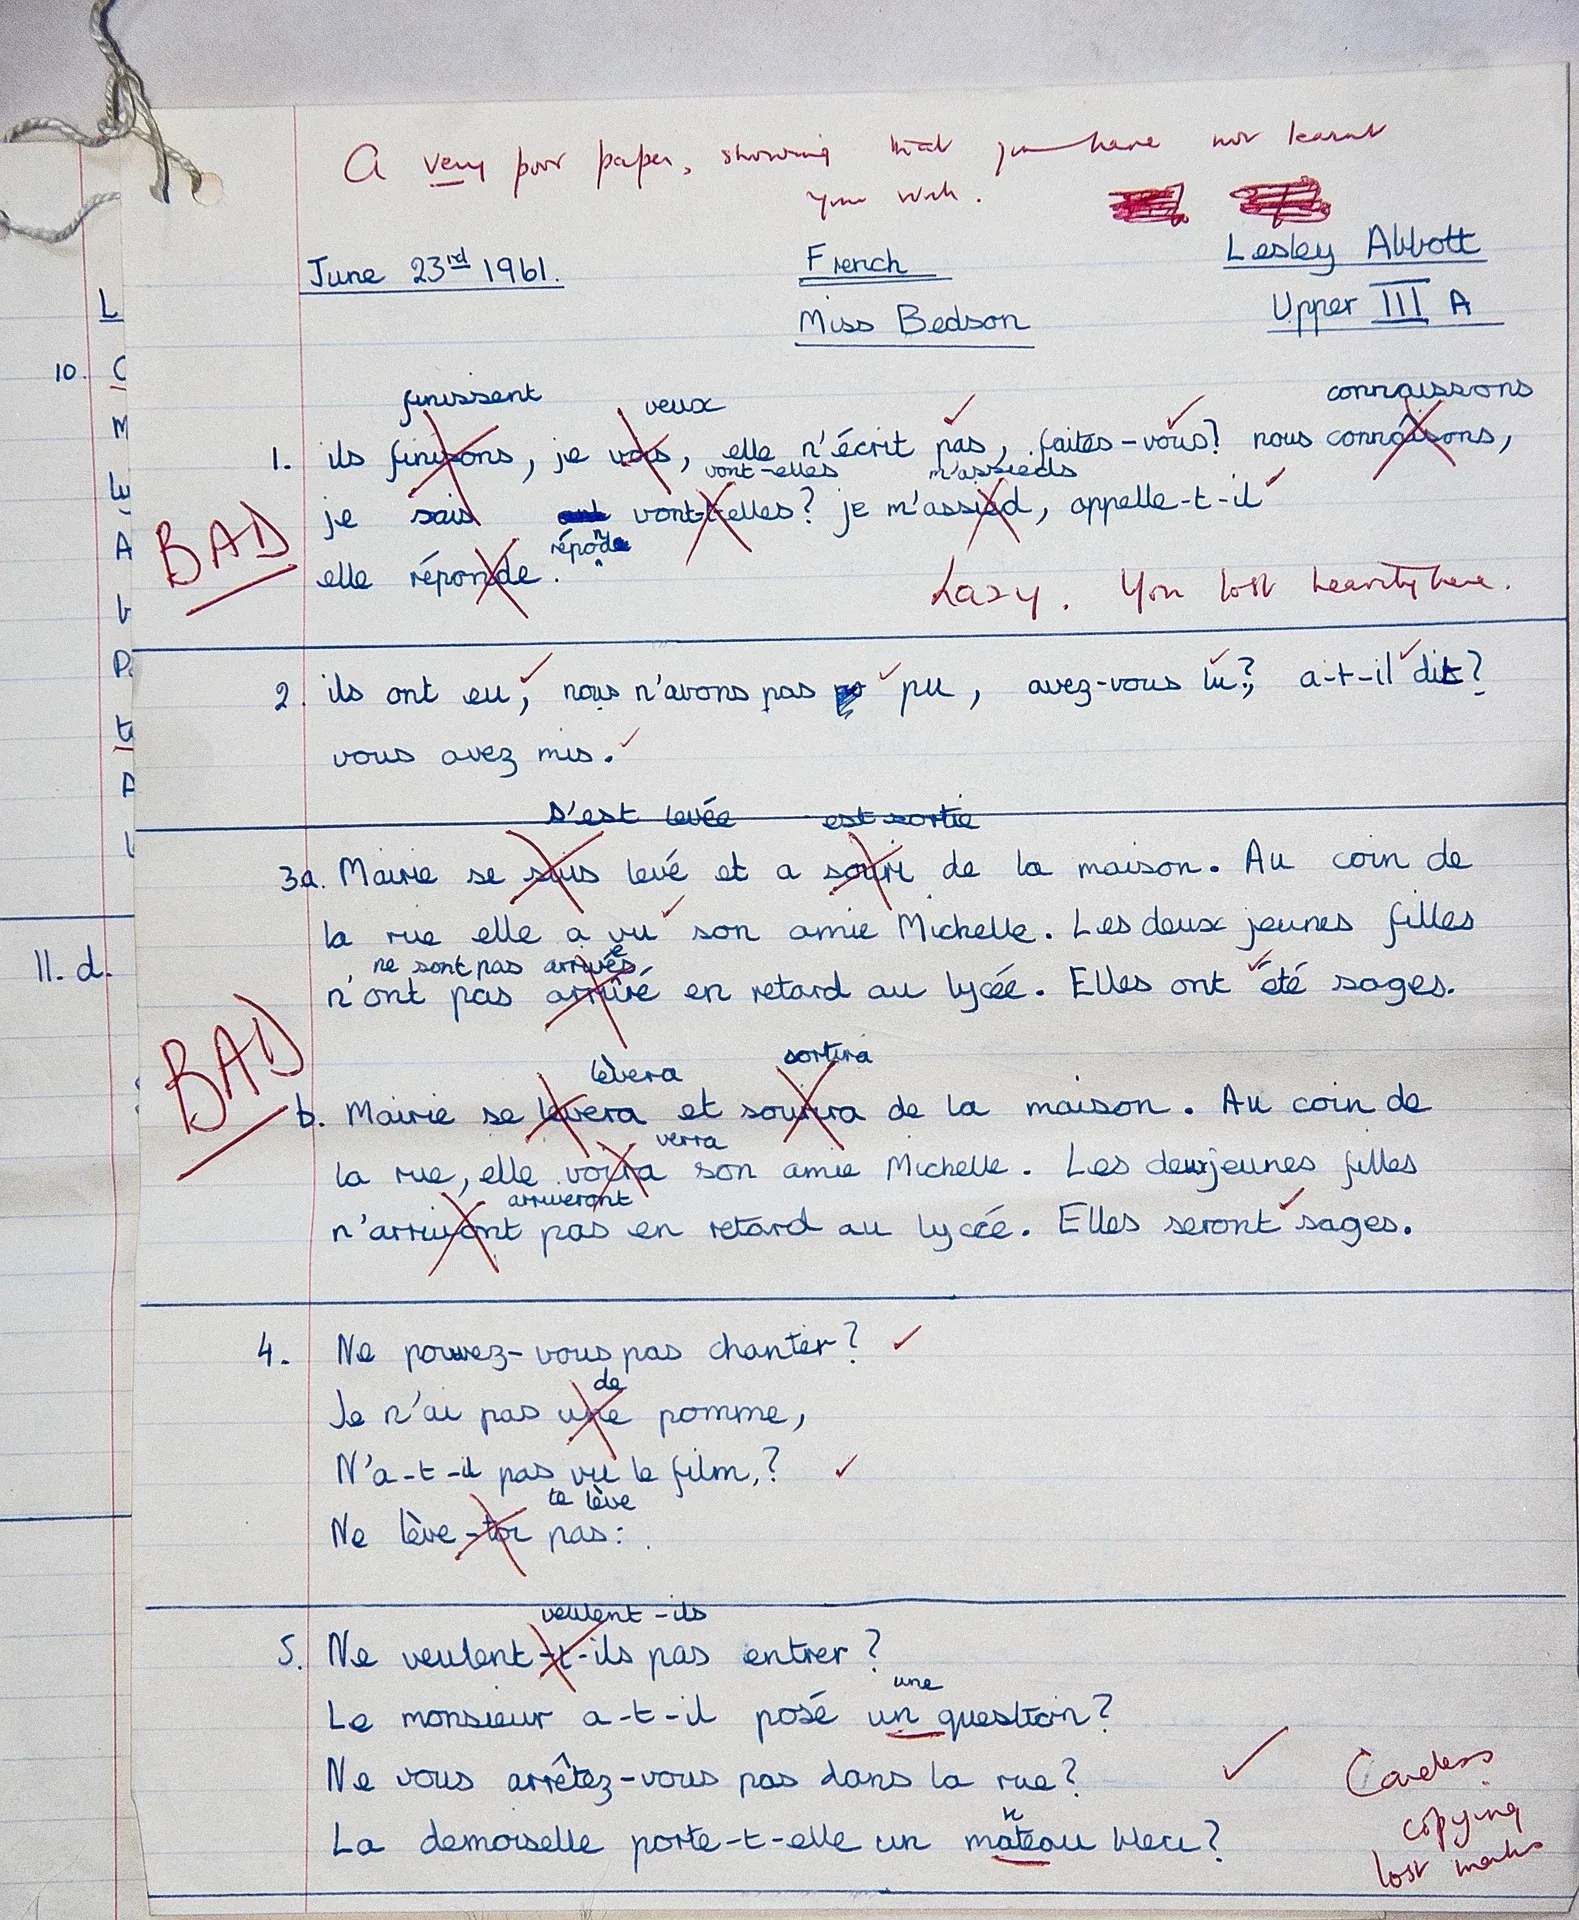 A very poor paper, showing that you have not learnt
your work.
June 23rd 1961.
French
Lesley Abbott
Miss Bedson
Upper III A
finissent veux connaissons
1. ils finisons, je vois, elle n'écrit pas, faites-vous? nous connaîsons,
vont-elles m'assieds
je sais vont-t-elles? je m'assied, appelle-t-il
réponde
BAD
elle réponde.
Lazy. You lost heavily here.
2. ils ont eu, nous n'avons pas pu, avez-vous lu?, a-t-il dit?
vous avez mis.
s'est levée est sortie
3a. Mairie se suis levé et a souri de la maison. Au coin de
la rue elle a vu son amie Michelle. Les deux jeunes filles
ne sont pas arrivées
n'ont pas arrivé en retard au lycée. Elles ont été sages.
BAD
lèvera sortira
b. Mairie se levera et sourira de la maison. Au coin de
verra
la rue, elle voira son amie Michelle. Les deux jeunes filles
arriveront
n'arrivont pas en retard au lycée. Elles seront sages.
4. Ne pouvez-vous pas chanter?
de
Je n'ai pas une pomme,
N'a-t-il pas vu le film,?
te lève
Ne lève-toi pas:
veulent-ils
5. Ne veulent-t-ils pas entrer?
une
Le monsieur a-t-il posé un question?
Ne vous arrêtez-vous pas dans la rue?
n
La demoiselle porte-t-elle un mateau bleu?
Careless
copying
lost marks
L
10. C
M
A
P
A
11. d.